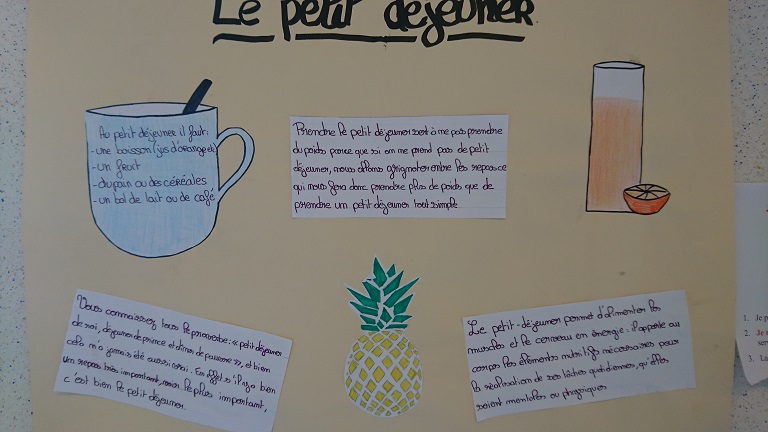 Le petit déjeuner
Au petit déjeuner il faut:
- une boisson (jus d'orange etc)
- un fruit
- du pain ou des céréales
- un bol de lait ou de café
Prendre le petit déjeuner sert à ne pas prendre
du poids parce que si on ne prend pas de petit
déjeuner, nous allons grignoter entre les repas ce
qui nous fera donc prendre plus de poids que de
prendre un petit déjeuner tout simple.
Vous connaissez tous le proverbe: « petit déjeuner
de roi, déjeuner de prince et dîner de pauvre », et bien
cela n'a jamais été aussi vrai. En effet s'il y a bien
un repas très important, voir le plus important,
c'est bien le petit déjeuner.
Le petit-déjeuner permet d'alimenter les
muscles et le cerveau en énergie : il apporte au
corps les éléments nutritifs nécessaires pour
la réalisation de ses tâches quotidiennes, qu'elles
soient mentales ou physiques
1.
2.
3.